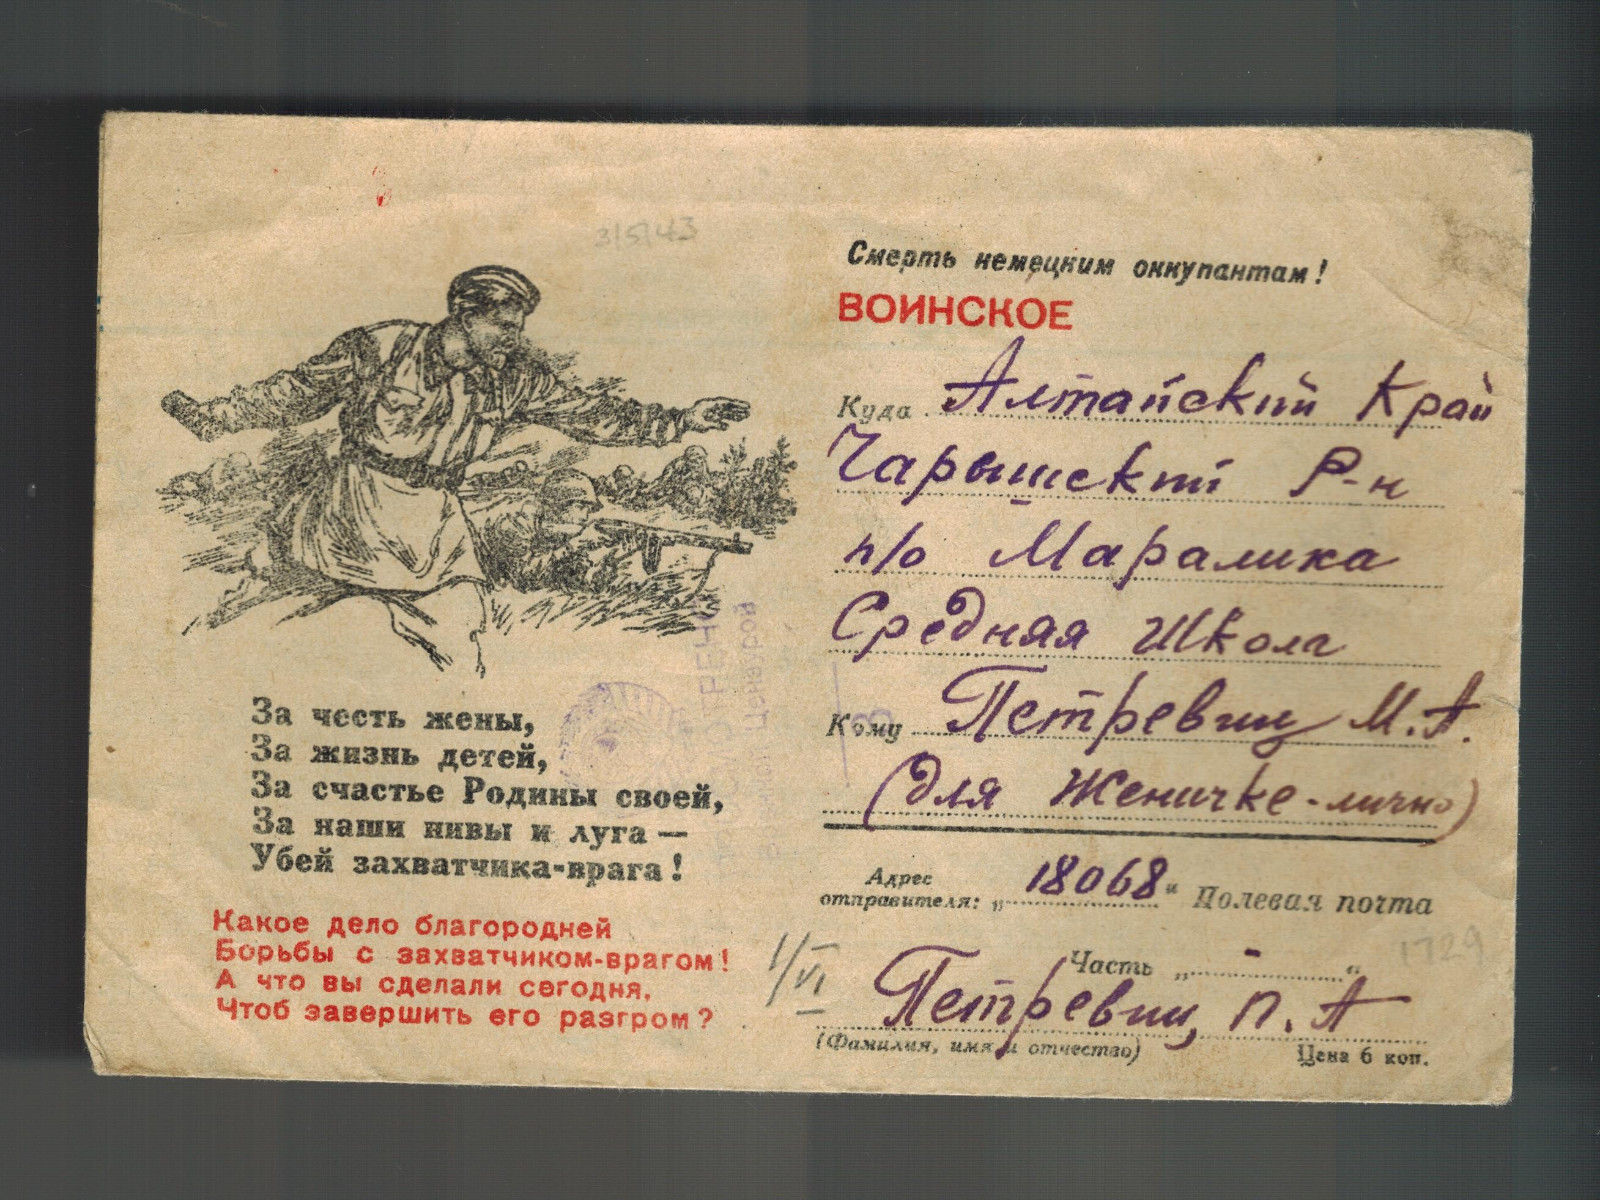 3/5/43
За честь жены,
За жизнь детей,
За счастье Родины своей,
За наши нивы и луга —
Убей захватчика-врага!
Какое дело благородней
Борьбы с захватчиком-врагом!
А что вы сделали сегодня,
Чтоб завершить его разгром?
Смерть немецким оккупантам!
ВОИНСКОЕ
Куда Алтайский Край
Чарышский Р-н
п/о Маралиха
Средняя Школа
Кому Петревич М.А.
(для Женичке-лично)
Адрес
отправителя: „18068“ Полевая почта
1/VI
1729
Часть „-“
Петревич, П.А
(Фамилия, имя и отчество)
Цена 6 коп.